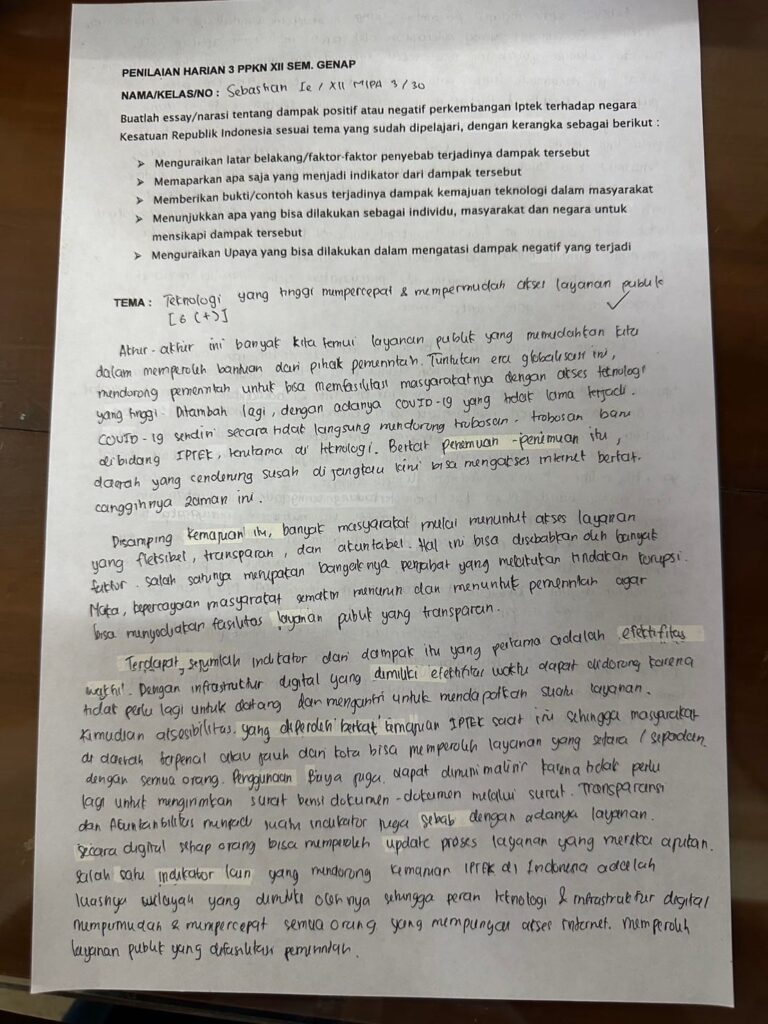 PENILAIAN HARIAN 3 PPKN XII SEM. GENAP
NAMA/KELAS/NO : Sebastian Ie / XII MIPA 3 / 30
Buatlah essay/narasi tentang dampak positif atau negatif perkembangan Iptek terhadap negara
Kesatuan Republik Indonesia sesuai tema yang sudah dipelajari, dengan kerangka sebagai berikut :
➢ Menguraikan latar belakang/faktor-faktor penyebab terjadinya dampak tersebut
➢ Memaparkan apa saja yang menjadi indikator dari dampak tersebut
➢ Memberikan bukti/contoh kasus terjadinya dampak kemajuan teknologi dalam masyarakat
➢ Menunjukkan apa yang bisa dilakukan sebagai individu, masyarakat dan negara untuk
mensikapi dampak tersebut
➢ Menguraikan Upaya yang bisa dilakukan dalam mengatasi dampak negatif yang terjadi
TEMA : Teknologi yang tinggi mempercepat & mempermudah akses layanan publik
[6 (+)]
Akhir-akhir ini banyak kita temui layanan publik yang memudahkan kita
dalam memperoleh bantuan dari pihak pemerintah. Tuntutan era globalisasi ini,
mendorong pemerintah untuk bisa memfasilitasi masyarakatnya dengan akses teknologi
yang tinggi. Ditambah lagi, dengan adanya COVID-19 yang tidak lama terjadi.
COVID-19 sendiri secara tidak langsung mendorong trobosan-trobosan baru
dibidang IPTEK, terutama di teknologi. Berkat penemuan-penemuan itu,
daerah yang cenderung susah di jangkau kini bisa mengakses internet berkat
canggihnya zaman ini.
Disamping kemajuan itu, banyak masyarakat mulai menuntut akses layanan
yang fleksibel, transparan, dan akuntabel. Hal ini bisa disebabkan oleh banyak
faktor. Salah satunya merupakan banyaknya penjabat yang melakukan tindakan korupsi.
Maka, kepercayaan masyarakat semakin menurun dan menuntut pemerintah agar
bisa menyediakan fasilitas layanan publik yang transparan.
Terdapat sejumlah indikator dari dampak itu yang pertama adalah efektifitas
waktu. Dengan infrastruktur digital yang dimiliki efektifitas waktu dapat didorong karena
tidak perlu lagi untuk datang dan mengantri untuk mendapatkan suatu layanan.
Kemudian aksesibilitas, yang diperoleh berkat kemajuan IPTEK saat ini sehingga masyarakat
di daerah terpenal atau jauh dari kota bisa memperoleh layanan yang setara / sepadan
dengan semua orang. Penggunaan Biaya juga dapat diminimalisir karena tidak perlu
lagi untuk mengirimkan surat berisi dokumen-dokumen melalui surat. Transparansi
dan Akuntanbilitas menjadi suatu indikator juga sebab dengan adanya layanan
secara digital setiap orang bisa memperoleh update proses layanan yang mereka ajukan.
Salah satu indikator lain yang mendorong kemajuan IPTEK di Indonesia adalah
luasnya wilayah yang dimiliki olehnya sehingga peran teknologi & infrastruktur digital
mempermudah & mempercepat semua orang yang mempunyai akses internet memperoleh
layanan publik yang difasilitasi pemerintah.